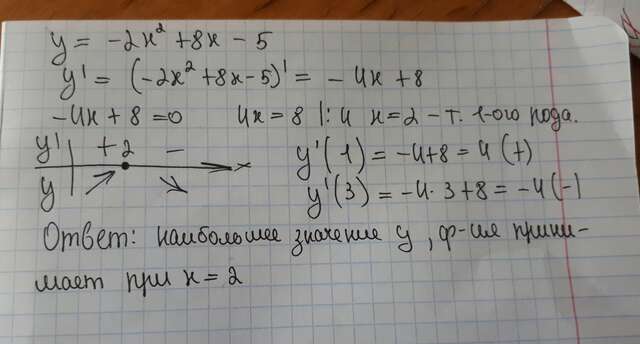 y = -2x² + 8x - 5
y' = (-2x² + 8x - 5)' = -4x + 8
-4x + 8 = 0 4x = 8 |: 4 x = 2 - т. 1-ого рода.
y' + 2 - x
y
y'(1) = -4+8 = 4 (+)
y'(3) = -4·3+8 = -4(-)
Ответ: наибольшее значение y, ф-ия прини-
мает при x = 2